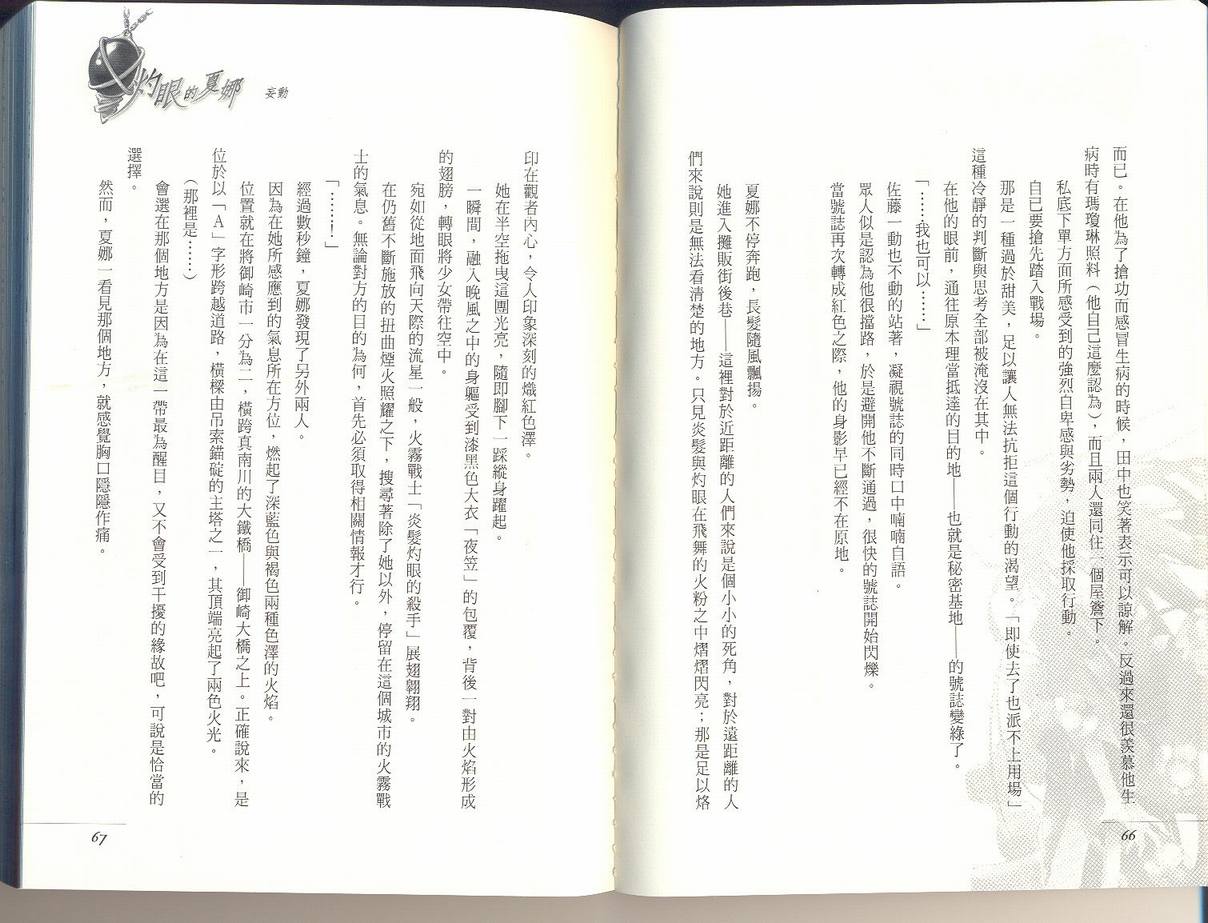 而已。在他為了搶功而感冒生病的時候，田中也笑著表示可以諒解。反過來還很羨慕他生
病時有瑪瓊琳照料（他自己這麼認為），而且兩人還同住一個屋簷下。
私底下單方面所感受到的強烈自卑感與劣勢，迫使他採取行動。
自己要搶先踏入戰場。
那是一種過於甜美，足以讓人無法抗拒這個行動的渴望。「即使去了也派不上用場」
這種冷靜的判斷與思考全部被淹沒在其中。
在他的眼前，通往原本理當抵達的目的地——也就是秘密基地——的號誌變綠了。
「……我也可以……」
佐藤一動也不動的站著，凝視號誌的同時口中喃喃自語。
眾人似是認為他很擋路，於是避開他不斷通過，很快的號誌開始閃爍。
當號誌再次轉成紅色之際，他的身影早已經不在原地。
夏娜不停奔跑，長髮隨風飄揚。
她進入攤販街後巷——這裡對於近距離的人們來說是個小小的死角，對於遠距離的人
們來說則是無法看清楚的地方。只見炎髮與灼眼在飛舞的火粉之中熠熠閃亮；那是足以烙
66
灼眼的夏娜 妄動
印在觀者內心，令人印象深刻的熾紅色澤。
她在半空拖曳這團光亮，隨即腳下一踩縱身躍起。
一瞬間，融入晚風之中的身軀受到漆黑色大衣「夜笠」的包覆，背後一對由火焰形成
的翅膀，轉眼將少女帶往空中。
宛如從地面飛向天際的流星一般，火霧戰士「炎髮灼眼的殺手」展翅翱翔。
在仍舊不斷施放的扭曲煙火照耀之下，搜尋著除了她以外，停留在這個城市的火霧戰
士的氣息。無論對方的目的為何，首先必須取得相關情報才行。
「……！」
經過數秒鐘，夏娜發現了另外兩人。
因為在她所感應到的氣息所在方位，燃起了深藍色與褐色兩種色澤的火焰。
位置就在將御崎市一分為二，橫跨真南川的大鐵橋——御崎大橋之上。正確說來，是
位於以「A」字形跨越道路，橫樑由吊索錨碇的主塔之一，其頂端亮起了兩色火光。
（那裡是……）
會選在那個地方是因為在這一帶最為醒目，又不會受到干擾的緣故吧，可說是恰當的
選擇。
然而，夏娜一看見那個地方，就感覺胸口隱隱作痛。
67